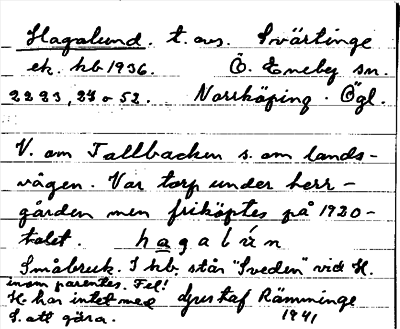 Hagalund. t. avs. Svärtinge
ek. hb 1936. Ö. Eneby sn.
2223, 27 o 52. Norrköping. Ögl.
V. om Tallbacken s. om lands-
vägen. Var torp under herr-
gården men friköptes på 1920-
talet. hagalún
Småbruk. I hb. står "Sveden" vid H.
inom parentes. Fel!
H. har intet med Gustaf Ramminge
S. att göra. 1941